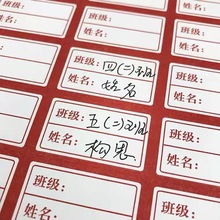 姓名:
班级:
姓名:
班级: 四(二)班
姓名: 姓名
班级:
姓名:
班级: 五(二)班
姓名: 构思
班级:
姓名:
班级:
姓名: